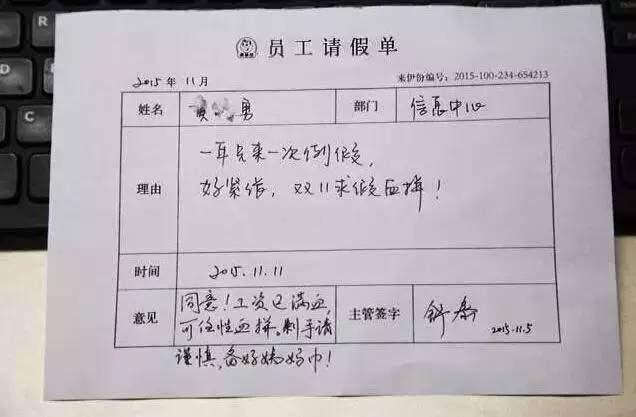 员工请假单
2015 年 11 月 来伊份编号：2015-100-234-654213
姓名 黄 勇 部门 信息中心
一年只来一次例假，
理由 好紧张，双11求假血拼！
时间 2015.11.11
同意！工资已满血，
意见 可任性血拼。剁手请 主管签字 2015.11.5
谨慎，备好姨妈巾！